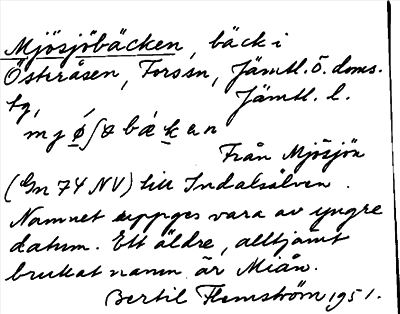 Mjösjöbäcken, bäck i
Österåsen, Fors sn, Jämtl. ö. doms.
tg, Jämtl. l.
mjø̀ʃøbækan
Från Mjösjön
(Gm 74 NV) till Indalsälven.
Namnet uppges vara av yngre
datum. Ett äldre, alltjämt
brukat namn är Miån.
Bertil Flemström 1951.